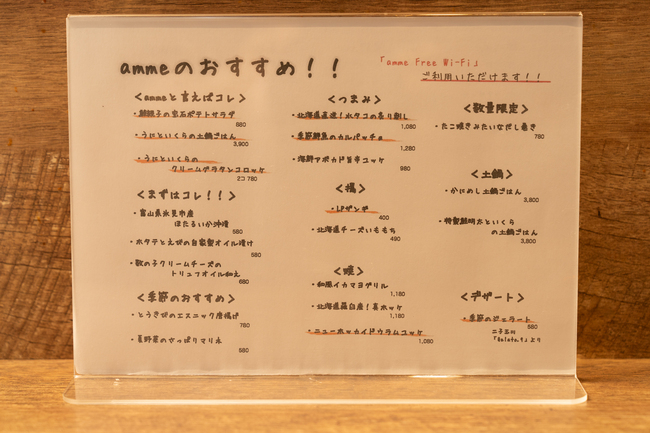 ammeのおすすめ！！
「amme Free Wi-Fi」
ご利用いただけます！！
＜ammeと言えばコレ＞
ポテトサラダ
880
・うにといくらの土鍋ごはん
3,900
・うにといくらの
クリームグラタンコロッケ
2コ 780
＜まずはコレ！！＞
・富山県氷見市産
ほたるいか沖漬
580
・ホタテとえびの自家製オイル漬け
580
・数の子クリームチーズの
トリュフオイル和え
680
＜季節のおすすめ＞
・とうきびのエスニック唐揚げ
780
・夏野菜のさっぱりマリネ
580
＜つまみ＞
・北海道直送！水タコの炙り刺し
1,080
・季節鮮魚のカルパッチョ
1,280
・海鮮アボカド旨辛ユッケ
980
＜揚＞
・ザンギ
400
・北海道チーズいももち
490
＜暖＞
・和風イカマヨグリル
1,180
・北海道羅臼産！真ホッケ
1,180
・ニューホッカイドウラムユッケ
1,080
＜数量限定＞
・たこ焼きみたいなだし巻き
780
＜土鍋＞
・かにめし土鍋ごはん
3,800
・特製鮭明太といくら
の土鍋ごはん
3,800
＜デザート＞
・季節のジェラート
580
二子玉川
より